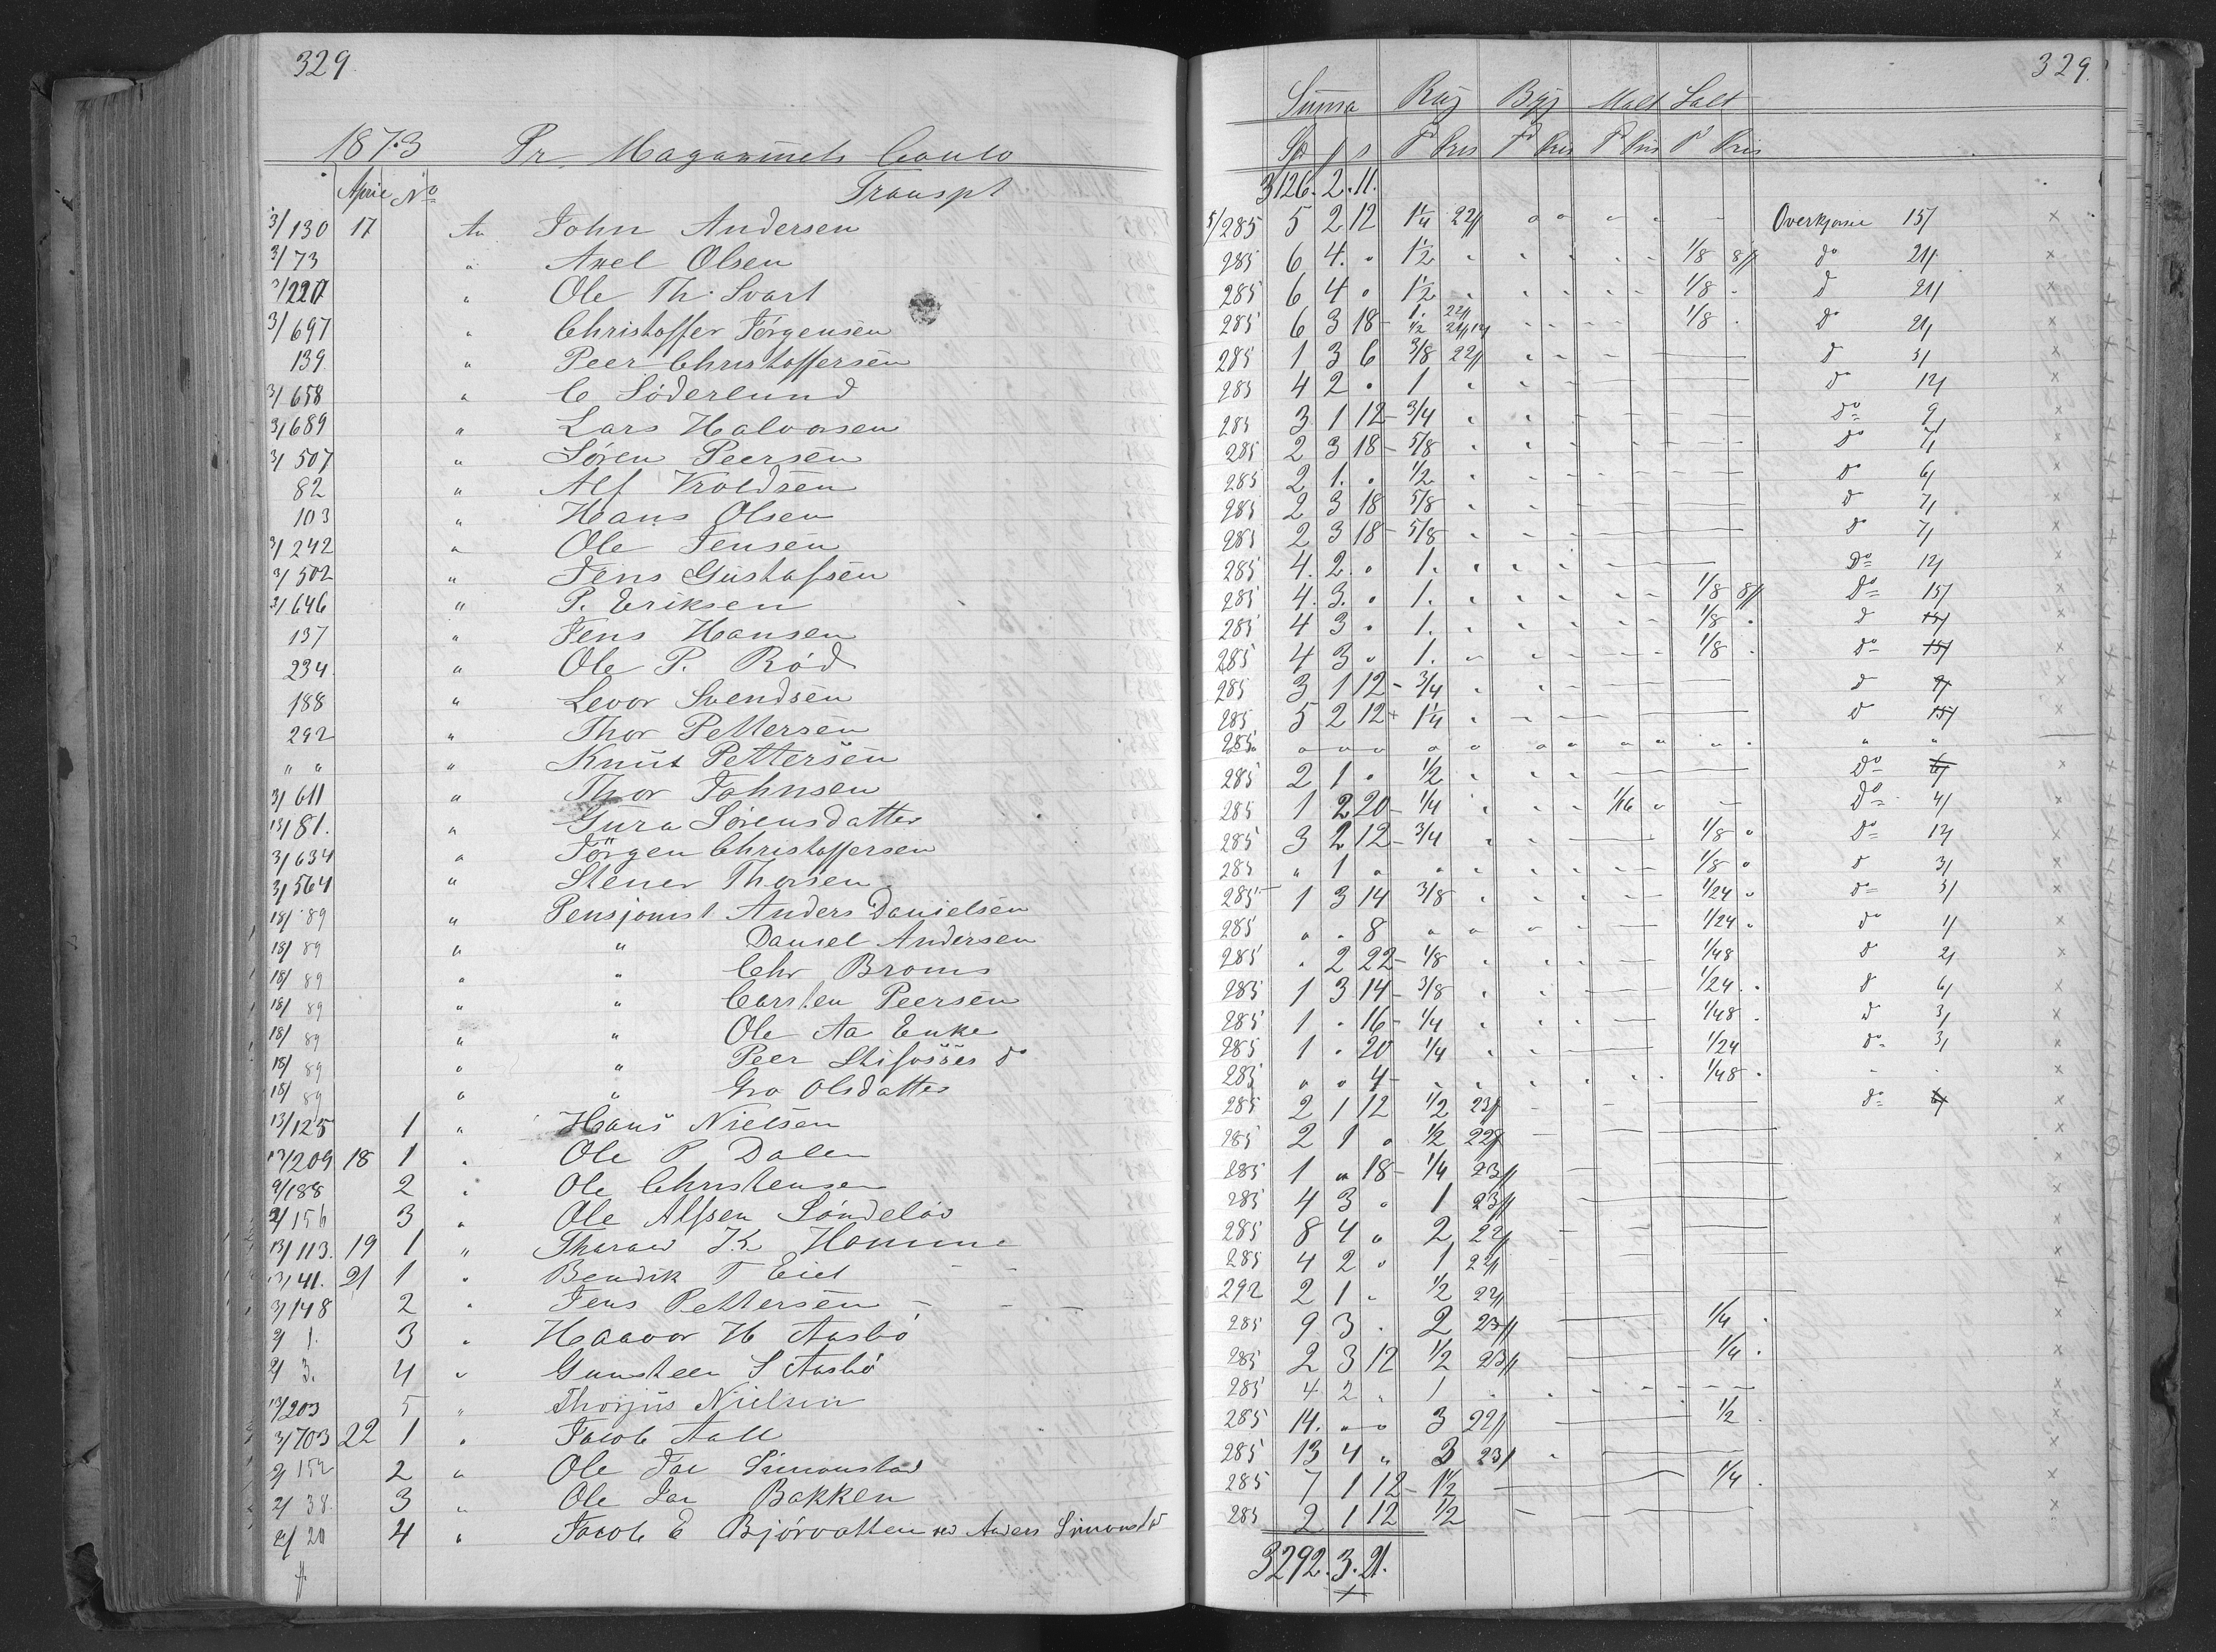 329.
1873 Pr Magazinets Conto
April No Transpt
3/130 17 An John Andersen
3/73 " Axel Olsen
3/227 " Ole Th. Svart
3/697 " Christoffer Jörgensen
139. " Peer Christoffersen
3/658 " C Söderlund
3/689 " Lars Halvorsen
3/507 " Sören Peersen
82 " Alf Kroldsen
103 " Hans Olsen
3/242 " Ole Jensen
3/502 " Jens Gustafsen
3/646 " P. Eriksen
137 " Jens Hansen
234 " Ole P. Röd
188 " Levor Svendsen
292 " Thor Pettersen
" " " Knut Pettersen
3/611 " Thor Johnsen
13/81. " Gura Sörensdatter
3/634 " Jörgen Christoffersen
3/564 " Stener Thorsen
18/89 " Pensjonist Anders Danielsen
18/89 " " Daniel Andersen
18/89 " " Chr Broms
18/89 " " Carsten Peersen
18/89 " " Ole Aa Enke
18/89 " " Peer do
18/89 " " Gro Olsdatter
13/125 1 " Hans Nielsen
13/209 18 1 " Ole P Dalen
9/188 2 " Ole Christensen
2/156 3 " Ole Alfsen Söndelöv
13/113. 19 1 " K Homme
13/41. 21 1 " Bendik T Eiet
3/148 2 " Jens Pettersen
2/1. 3 " Haavor H Aasbö
2/3. 4 " Gunsteen S Aasbö
13/203 5 " Thorjus Nielsen
3/703 22 1 " Jacob Aall
2/152 2 " Ole Jac Simonstad
2/38. 3 " Ole Jac Bakken
2/20 4 " Jacob E Björvatten ved Anders Simonstad
329.
Summa Rug Byg Malt Salt
Sp ƒ s T Pris T Pris T Pris T Pris
3126. 2. 11.
5/285 5 2 12 1 1/4 22ƒ Overkjörsel 15/
285 6 4. " 1 1/2 " 1/8 8ƒ do 21/
285 6 4 " 1 1/2 " 1/8 " d 21/
285 6 3 18 1. 22ƒ 1/2 1/8 " do 21/
285 1 3 6 3/8 22ƒ d 5/
285 4 2 " 1 " do 12/
285 3 1 12 3/4 " do 9/
285 2 3 18 5/8 " do 7/
285 2 1. " 1/2 " do 6/
285 2 3 18 5/8 " d 7/
285 2 3 18 5/8 " do 7/
285 4. 2. " 1. " Do 12/
285 4. 3. " 1. " 1/8 8ƒ Do 15/
285 4 3 " 1. " 1/8 " d 15/
285 4 3 " 1. " 1/8 " do 15/
285 3 1 12 3/4 " d 9/
285 5 2 12 1 1/4 " d 15/
285 " " " " " " "
285 2 1 " 1/2 " Do 6/
285 1 2 20 1/4 " 1/16 " Do 4/
285 3 2 12 3/4 " 1/8 " Do 12/
285 " 1 " " " 1/8 " d 3/
285 1 3 14 3/8 " 1/24 " do 5/
285 " " 8 " " 1/24 " do 1/
285 " 2 22 1/8 " 1/48 d 2/
285 1 3 14 3/8 " 1/24 " d 6/
285 1 " 16 1/4 " 1/48 " d 3/
285 1 " 20 1/4 " 1/24 do 3/
285 " " 4 " " 1/48 "
285 2 1 12 1/2 23ƒ do 6/
285 2 1 " 1/2 22ƒ
285 1 " 18 1/4 23ƒ
285 4 3 " 1 23ƒ
285 8 4 " 2 22ƒ
285 4 2 " 1 22ƒ
292 2 1 " 1/2 22ƒ
285 9 3 " 2 23ƒ 1/4 "
285 2 3 12 1/2 23ƒ 1/4 "
285 4 2 " 1 "
285 14. " " 3 22ƒ 1/2 "
285 13 4 " 3 23ƒ
285 7 1 12 1 1/2 1/4 "
285 2 1 12 1/2
3292. 3. 21.